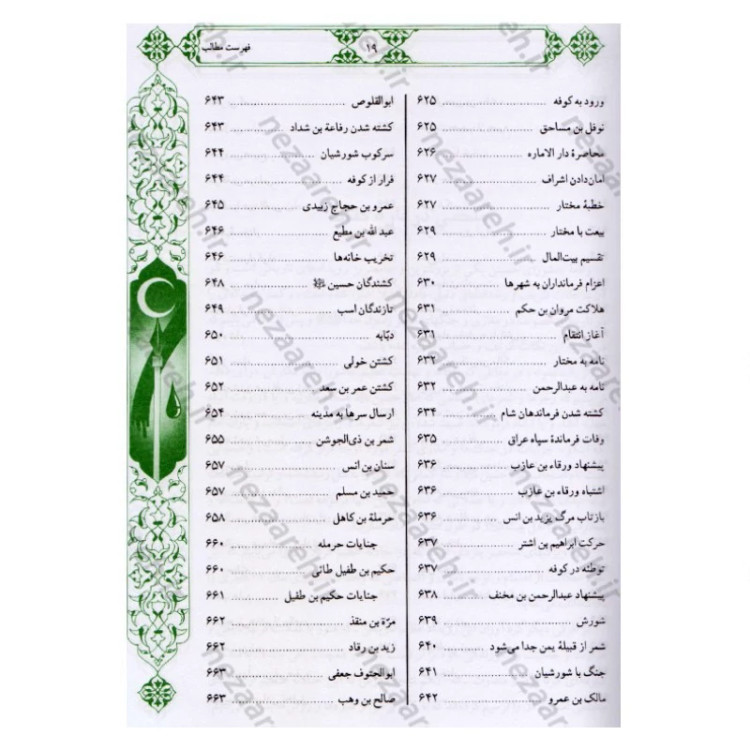 ۱۹
فهرست مطالب
ورود به کوفه ۶۲۵
نوفل بن مساحق ۶۲۵
محاصرهٔ دار الاماره ۶۲۶
امان‌دادن اشراف ۶۲۷
خطبهٔ مختار ۶۲۷
بیعت با مختار ۶۲۹
تقسیم بیت‌المال ۶۲۹
اعزام فرمانداران به شهرها ۶۳۰
هلاکت مروان بن حکم ۶۳۱
آغاز انتقام ۶۳۱
نامه به مختار ۶۳۲
نامه به عبدالرحمن ۶۳۲
کشته شدن فرماندهان شام ۶۳۴
وفات فرماندهٔ سپاه عراق ۶۳۵
پیشنهاد ورقاء بن عازب ۶۳۶
اشتباه ورقاء بن عازب ۶۳۶
بازتاب مرگ یزید بن انس ۶۳۶
حرکت ابراهیم بن اشتر ۶۳۷
توطئه در کوفه ۶۳۷
پیشنهاد عبدالرحمن بن مخنف ۶۳۸
شورش ۶۳۹
شمر از قبیلهٔ یمن جدا می‌شود ۶۴۰
جنگ با شورشیان ۶۴۱
مالک بن عمرو ۶۴۲
ابوالقلوص ۶۴۳
کشته شدن رفاعة بن شداد ۶۴۳
سرکوب شورشیان ۶۴۴
فرار از کوفه ۶۴۴
عمرو بن حجاج زبیدی ۶۴۵
عبد الله بن مطیع ۶۴۶
تخریب خانه‌ها ۶۴۶
کشندگان حسین ۶۴۸
تازندگان اسب ۶۴۹
دبّابه ۶۵۰
کشتن خولی ۶۵۱
کشتن عمر بن سعد ۶۵۲
ارسال سرها به مدینه ۶۵۴
شمر بن ذی‌الجوشن ۶۵۵
سنان بن انس ۶۵۷
حمید بن مسلم ۶۵۷
حرملة بن کاهل ۶۵۸
جنایات حرمله ۶۶۰
حکیم بن طفیل طائی ۶۶۰
جنایات حکیم بن طفیل ۶۶۱
مرّة بن منقذ ۶۶۲
زید بن رقاد ۶۶۲
ابوالحتوف جعفی ۶۶۳
صالح بن وهب ۶۶۳
nezaareh.ir